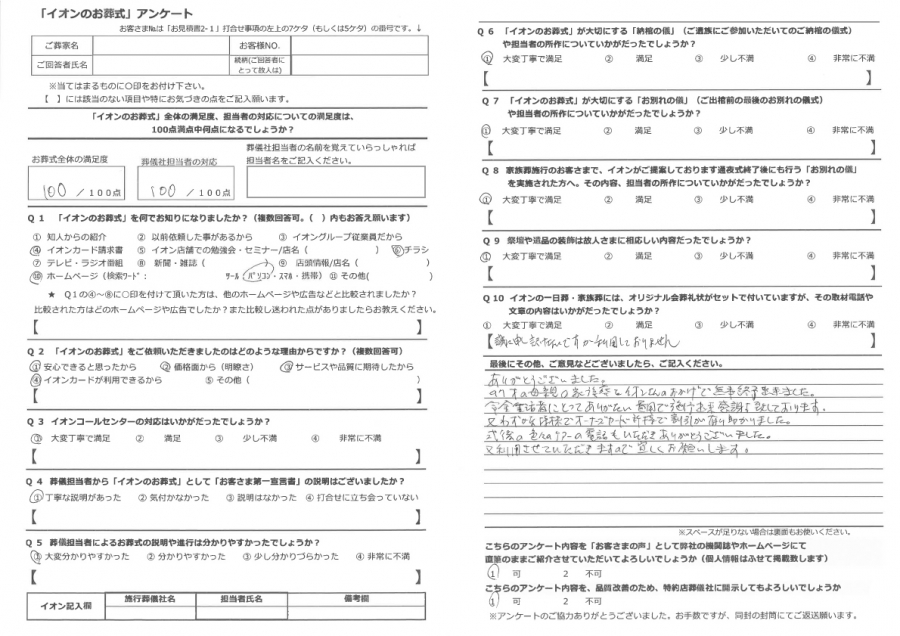 「イオンのお葬式」アンケート
お客さま№は「お見積書2-1」打合せ事項の左上の7ケタ（もしくは5ケタ）の番号です。↓
ご葬家名 お客様NO.
ご回答者氏名 続柄(ご回答者にとって故人は)
※当てはまるものに○印をお付け下さい。
【 】には該当のない項目や特にお気づきの点をご記入願います。
「イオンのお葬式」全体の満足度、担当者の対応についての満足度は、
100点満点中何点になるでしょうか？
お葬式全体の満足度 葬儀社担当者の対応 葬儀社担当者の名前を覚えていらっしゃれば
担当者名をご記入ください。
100 / 100点 100 / 100点
Q 1 「イオンのお葬式」を何でお知りになりましたか？（複数回答可。（ ）内もお答え願います）
① 知人からの紹介 ② 以前依頼した事があるから ③ イオングループ従業員だから
④ イオンカード請求書 ⑤ イオン店舗での勉強会・セミナー/店名（ ） ⑥チラシ
⑦ テレビ・ラジオ番組 ⑧ 新聞・雑誌（ ） ⑨ 店頭情報/店名（ ）
⑩ ホームページ（検索ﾜｰﾄﾞ： ﾂｰﾙ パソコン・スマホ・携帯） ⑪ その他( )
★ Q1の④～⑩に○印を付けて頂いた方は、他のホームページや広告などと比較されましたか？
比較された方はどのホームページや広告でしたか？また比較し迷われた点がありましたらお教えください。
【 】
Q 2 「イオンのお葬式」をご依頼いただきましたのはどのような理由からですか？（複数回答可）
① 安心できると思ったから ② 価格面から（明瞭さ） ③ サービスや品質に期待したから
④ イオンカードが利用できるから ⑤ その他（ ）
【 】
Q 3 イオンコールセンターの対応はいかがだったでしょうか？
① 大変丁寧で満足 ② 満足 ③ 少し不満 ④ 非常に不満
【 】
Q 4 葬儀担当者から「イオンのお葬式」として「お客さま第一宣言書」の説明はございましたか？
① 丁寧な説明があった ② 気付かなかった ③ 説明はなかった ④ 打合せに立ち会っていない
【 】
Q 5 葬儀担当者によるお葬式の説明や進行は分かりやすかったでしょうか？
① 大変分かりやすかった ② 分かりやすかった ③ 少し分かりづらかった ④ 非常に不満
【 】
イオン記入欄 施行葬儀社名 担当者氏名 備考欄
Q 6 「イオンのお葬式」が大切にする「納棺の儀」（ご遺族にご参加いただいてのご納棺の儀式）
や担当者の所作についていかがだったでしょうか？
① 大変丁寧で満足 ② 満足 ③ 少し不満 ④ 非常に不満
【 】
Q 7 「イオンのお葬式」が大切にする「お別れの儀」（ご出棺前の最後のお別れの儀式）
や担当者の所作についていかがだったでしょうか？
① 大変丁寧で満足 ② 満足 ③ 少し不満 ④ 非常に不満
【 】
Q 8 家族葬施行のお客さまで、イオンがご提案しております通夜式終了後にも行う「お別れの儀」
を実施された方へ。その内容、担当者の所作についていかがだったでしょうか？
① 大変丁寧で満足 ② 満足 ③ 少し不満 ④ 非常に不満
【 】
Q 9 祭壇や遺品の装飾は故人さまに相応しい内容だったでしょうか？
① 大変丁寧で満足 ② 満足 ③ 少し不満 ④ 非常に不満
【 】
Q 10 イオンの一日葬・家族葬には、オリジナル会葬礼状がセットで付いていますが、その取材電話や
文章の内容はいかがだったでしょうか？
① 大変丁寧で満足 ② 満足 ③ 少し不満 ④ 非常に不満
【誠に申し訳ないんですが利用しておりません
最後にその他、ご意見などございましたら、ご記入ください。
ありがとうございました。
97才の母親の家族葬もイオンさんのおかげで無事終了出来ました。
年金生活者にとってありがたい費用で済み本当感謝致しております。
又わずかな特様でオーナーズカード所持で割引が有り助かりました。
式後の色々のケアーの電話もいただきありがとうございました。
又利用させていただきますので宜しくお願いします。
※スペースが足りない場合は裏面もお使いください。
こちらのアンケート内容を「お客さまの声」として弊社の機関誌やホームページにて
直筆のままご紹介させていただいてよろしいでしょうか（個人情報はふせて掲載致します）
1 可 2 不可
こちらのアンケート内容を、品質改善のため、特約店葬儀社に開示してもよろしいでしょうか
1 可 2 不可
※アンケートのご協力ありがとうございました。お手数ですが、同封の封筒にてご返送願います。